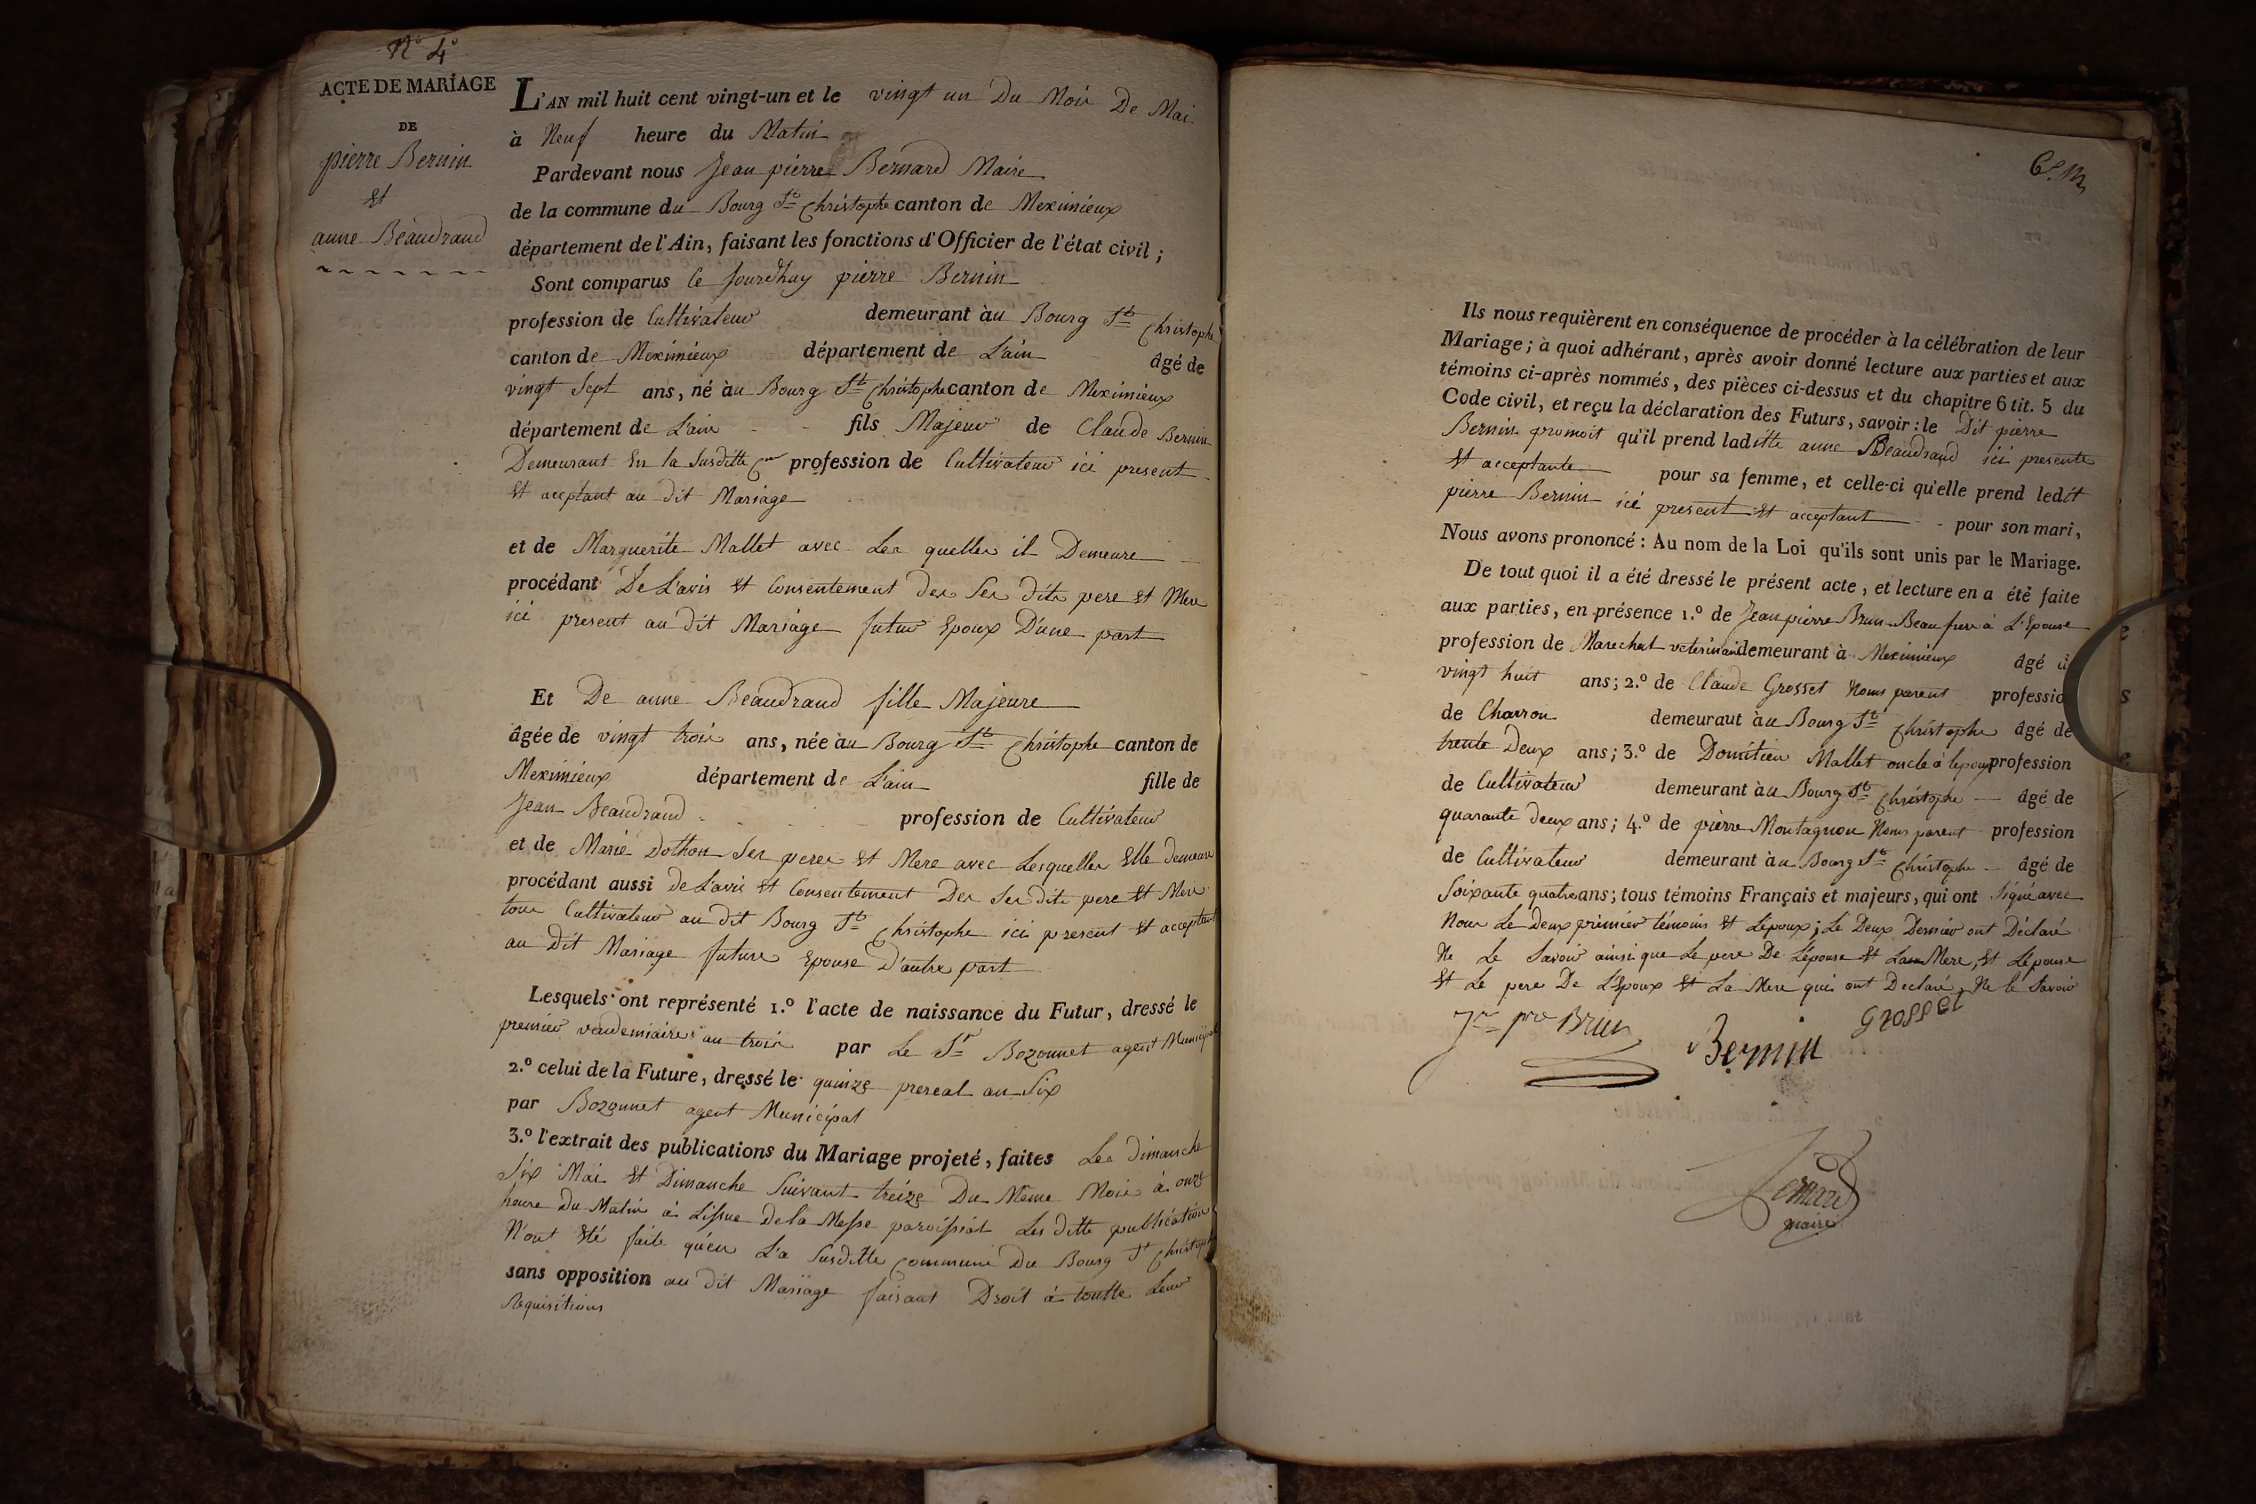 N° 4°
ACTE DE MARIAGE
DE
pierre Bernin
Et
anne Beaudrand
L'AN mil huit cent vingt-un et le vingt un Du Mois De Mai
à Neuf heure du Matin
Pardevant nous Jean pierre Bernard Maire
de la commune du Bourg St Christophe canton de Meximieux
département de l'Ain, faisant les fonctions d'Officier de l'état civil ;
Sont comparus Ce Jourdhuy pierre Bernin
profession de Cultivateur demeurant àu Bourg St Christophe
canton de Meximieux département de L'ain âgé de
vingt Sept ans, né àu Bourg St Christophe canton de Meximieux
département de L'ain fils Majeur de Claude Bernin
Demeurant En la Susditte Cne profession de Cultivateur ici present
Et acceptant au dit Mariage
et de Marguerite Mallet avec Les quelles il Demeure
procédant De L'avis Et Consentement Des Ses dits pere Et Mere
ici present au dit Mariage futur Epoux D'une part
Et De anne Beaudrand fille Majeure
âgée de vingt trois ans, née àu Bourg St Christophe canton de
Meximieux département de L'ain fille de
Jean Beaudrand profession de Cultivateur
et de Marie Dothon Ses peres Et Mere avec Lesquelles Elle demeure
procédant aussi De L'avis Et Consentement Des Ses dits pere Et Mere
tous Cultivateur au dit Bourg St Christophe ici present Et acceptant
au Dit Mariage future Epouse D'autre part
Lesquels ont représenté 1.° l'acte de naissance du Futur, dressé le
premier vendemiaire an trois par Le Sr Bozonnet agent Municipal
2.° celui de la Future, dressé le quinze prereal an Six
par Bozonnet agent Municipal
3.° l'extrait des publications du Mariage projeté, faites Les Dimanche
Six Mai Et Dimanche Suivant treize Du Même Mois à onze
heure Du Matin à Lissue de la Messe paroissial Les ditte publication
N'ont Eté faite qu'en La Susditte Commune Du Bourg St Christophe
sans opposition au dit Mariage faisant Droit à toutte Leur
Requisitions
Ils nous requièrent en conséquence de procéder à la célébration de leur
Mariage ; à quoi adhérant, après avoir donné lecture aux parties et aux
témoins ci-après nommés, des pièces ci-dessus et du chapitre 6 tit. 5 du
Code civil, et reçu la déclaration des Futurs, savoir : le Dit pierre
Bernin promoit qu'il prend laditte anne Beaudrand ici presente
Et acceptante pour sa femme, et celle-ci qu'elle prend ledit
pierre Bernin ici present Et acceptant pour son mari,
Nous avons prononcé : Au nom de la Loi qu'ils sont unis par le Mariage.
De tout quoi il a été dressé le présent acte, et lecture en a été faite
aux parties, en présence 1.° de Jean pierre Brun Beau frere à L'Epouse
profession de Marechal veterinaire demeurant à Meximieux âgé
vingt huit ans ; 2.° de Claude Grosset Noms parent professio
de Charron demeurant àu Bourg St Christophe âgé de
trente Deux ans ; 3.° de Domitien Mallet oncle à lepoux profession
de Cultivateur demeurant àu Bourg St Christophe âgé de
quarante deux ans ; 4.° de pierre Montagnon Noms parent profession
de Cultivateur demeurant àu Bourg St Christophe âgé de
Soixante quatre ans ; tous témoins Français et majeurs, qui ont Signé avec
Nous Le Deux premier témoins Et Lépoux ; Le Deux Dernier ont Déclaré
Ne Le Savoir ainsi que Le pere De Lépouse Et La Mere, Et Lépouse
Et Le pere De L'Epoux Et La Mere qui ont Declaré Ne le Savoir
Jn pre Brun
Bernin
Grosset
Bernard
maire